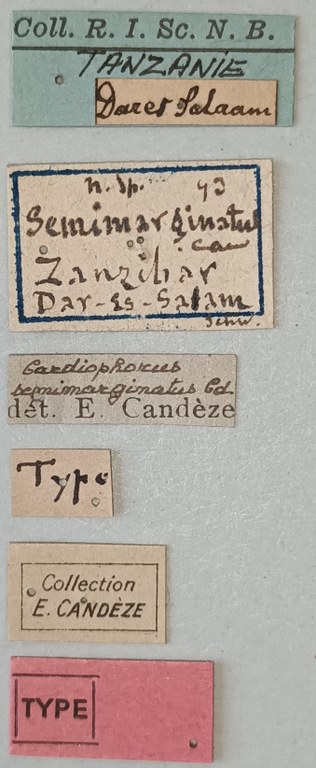 Coll. R. I. Sc. N. B.
TANZANIE
Dares Salaam
n. sp. 93
Semimarginatus
Zanzibar
Dar-Es-Salam
Schw.
Cardiophorus
semimarginatus Cd.
dét. E. Candèze
Type
Collection
E. CANDÈZE
TYPE